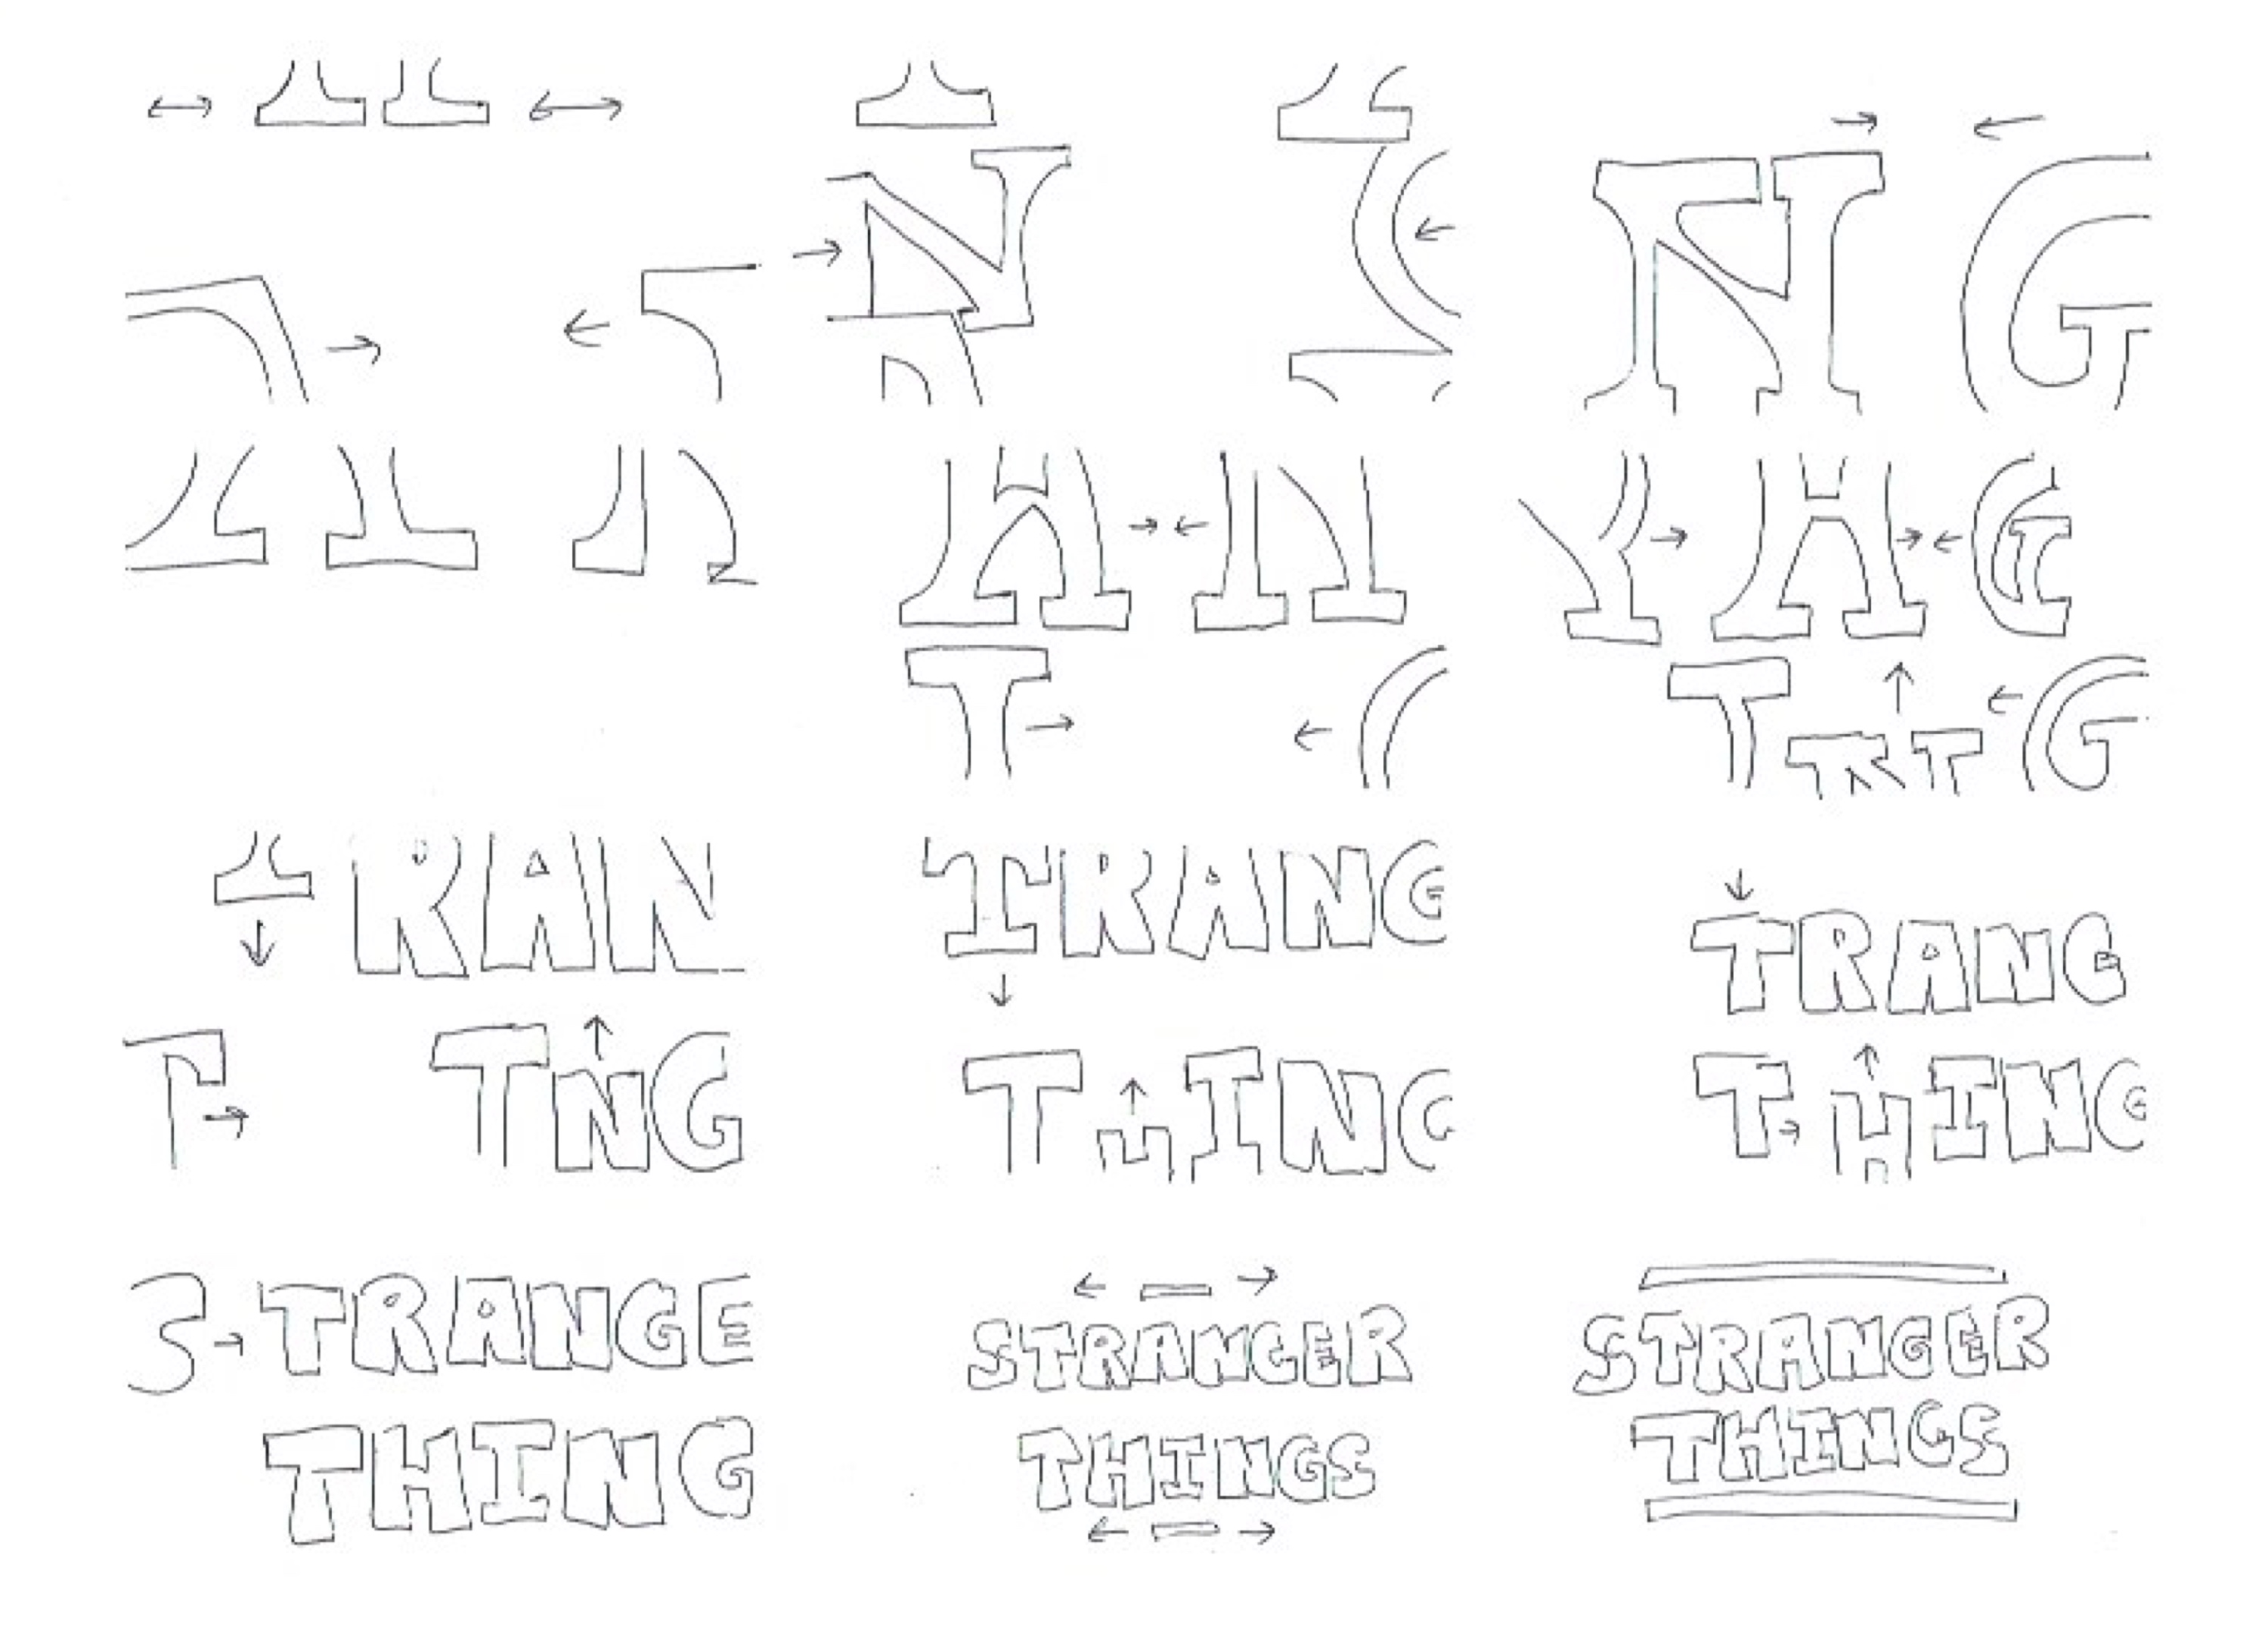 N
N G
A N
T
A G
T G
RAN
TNG
TRANG
THING
TRANG
THING
S TRANGE
THING
STRANGER
THINGS
STRANGER
THINGS